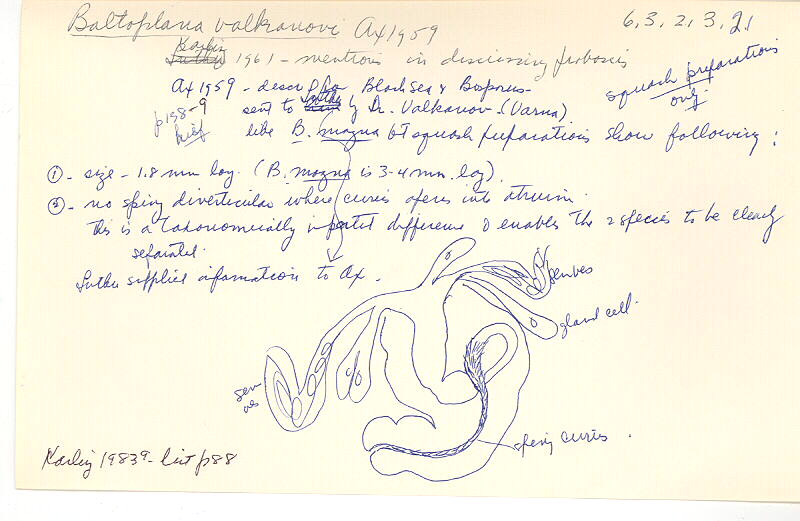 Baltoplana valkanovi Ax 1959
6, 3, 2, 3, 21
Karling
1961 - mentions in discussing proboscis
Ax 1959 - descr for Black Sea & Bosporus -
squash preparations
only
p 138-9
brief
sent to Luther by Dr. Valkanov - (Varna)
like B. magna but squash preparations show following :
① - size - 1.8 mm long. (B. magna is 3-4 mm long).
② - no spiny diverticular where cirrus opens into atrium.
This is a taxonomically important difference & enables the 2 species to be clearly
separated.
Luther supplied information to Ax.
sem ves
gland cell.
sem
ves
spiny cirrus.
Karling 1983a - list p 88